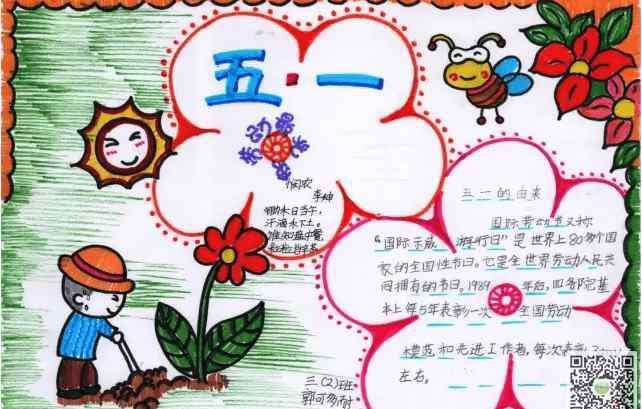 五·一
悯农
李绅
锄禾日当午,
汗滴禾下土。
谁知盘中餐,
粒粒皆辛苦。
五一的由来
国际劳动节又称
"国际示威游行日"是世界上80多个国
家的全国性节日。它是全世界劳动人民共
同拥有的节日。1989年后,国务院基
本上每5年表彰一次全国劳动
模范和先进工作者,每次表彰
左右。
三(2)班